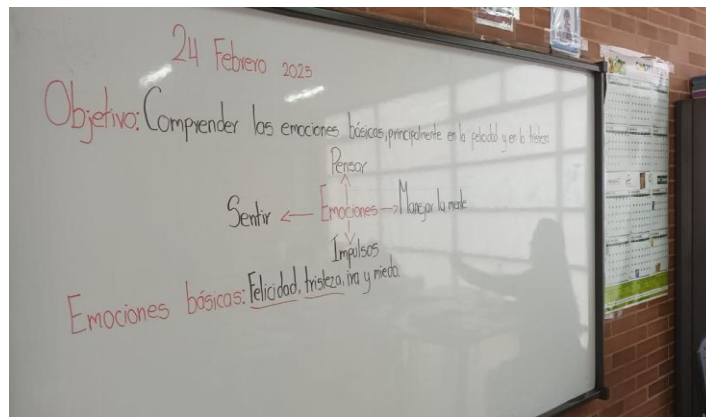 24 Febrero 2025
Objetivo: Comprender las emociones básicas, principalmente en la felicidad y en la tristeza
Pensar
Sentir ← Emociones → Manejar la mente
Impulsos
Emociones básicas: Felicidad, tristeza, ira y miedo.